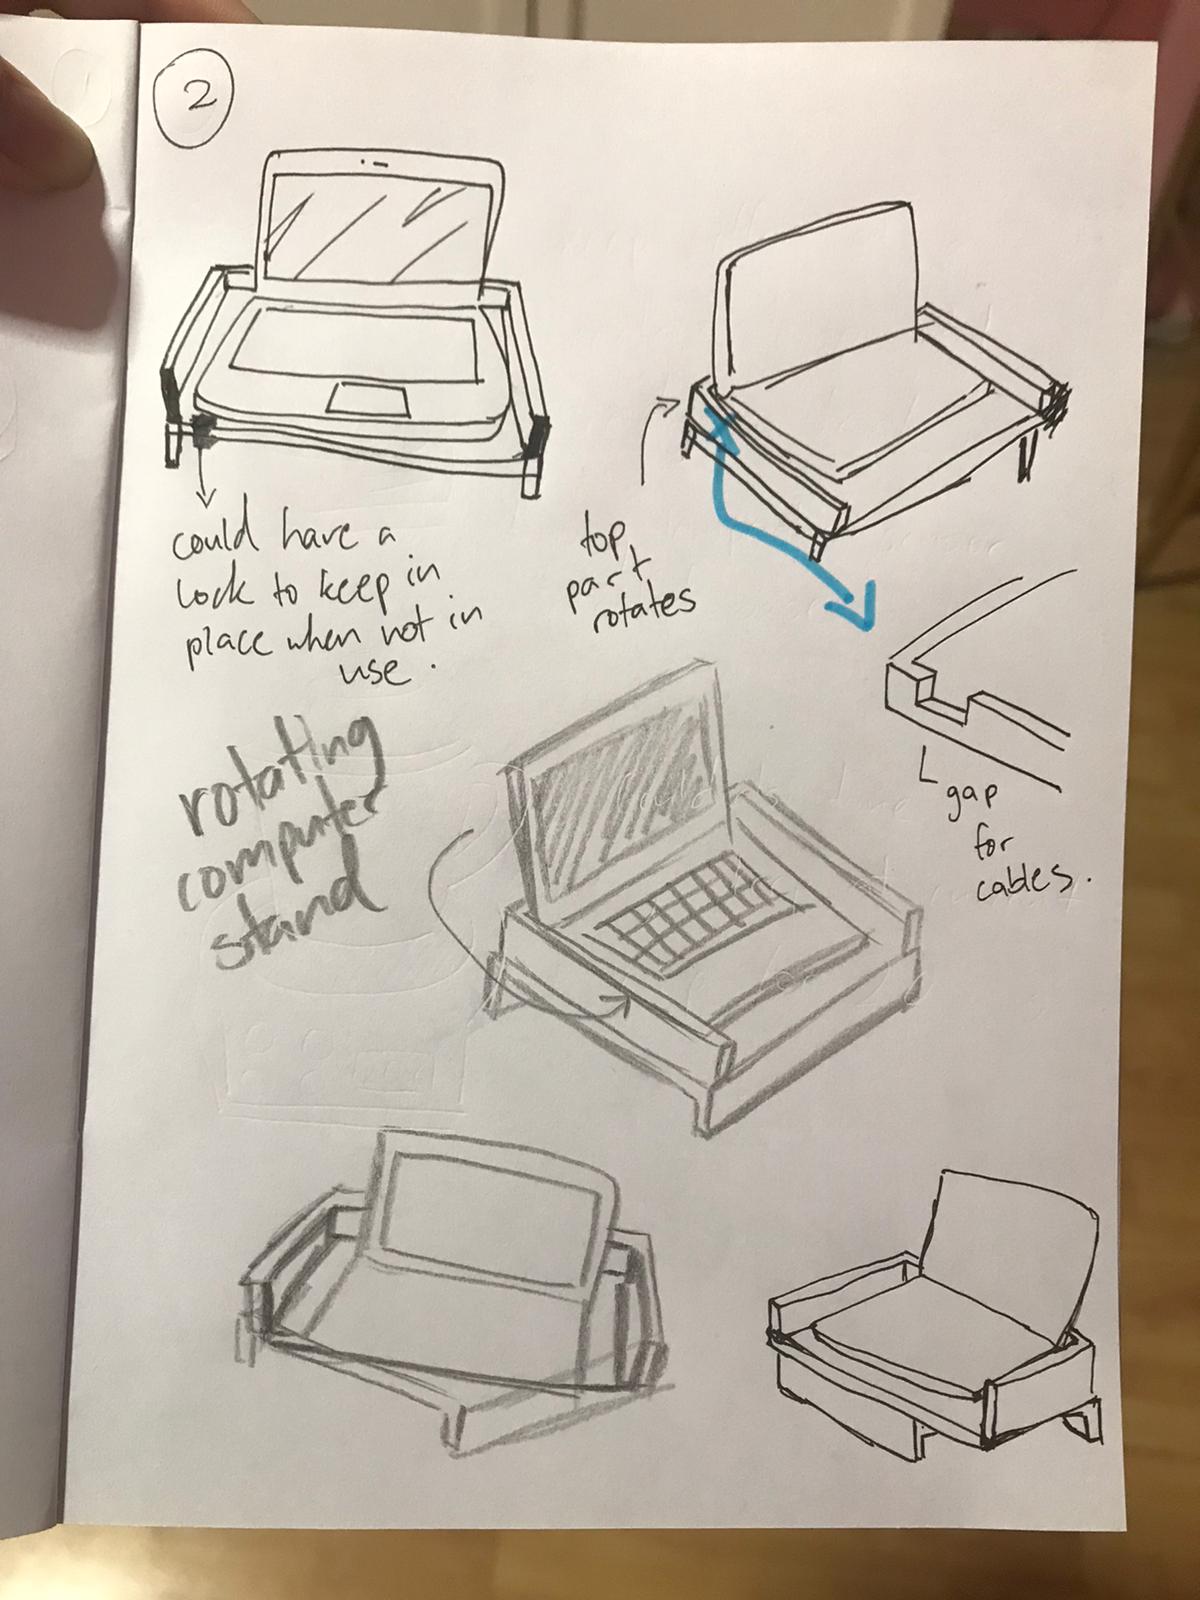 2
could have a
lock to keep in
place when not in
use.
top
part
rotates
gap
for
cables.
rotating
computer
stand